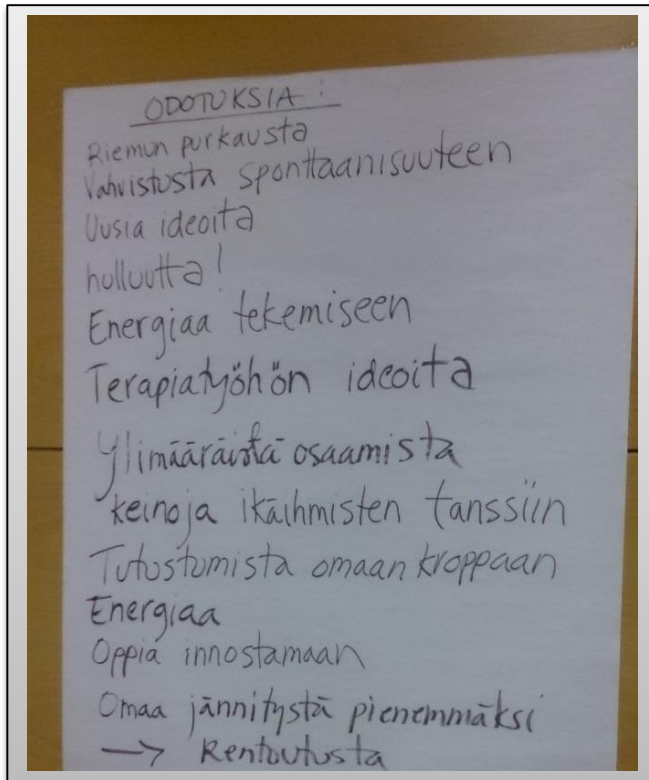 ODOTUKSIA :
Riemun purkausta
Vahvistusta sponttaanisuuteen
Uusia ideoita
hulluutta!
Energiaa tekemiseen
Terapiatyöhön ideoita
Ylimääräistä osaamista
keinoja ikäihmisten tanssiin
Tutustumista omaan kroppaan
Energiaa
Oppia innostamaan
Omaa jännitystä pienemmäksi
→ Rentoutusta